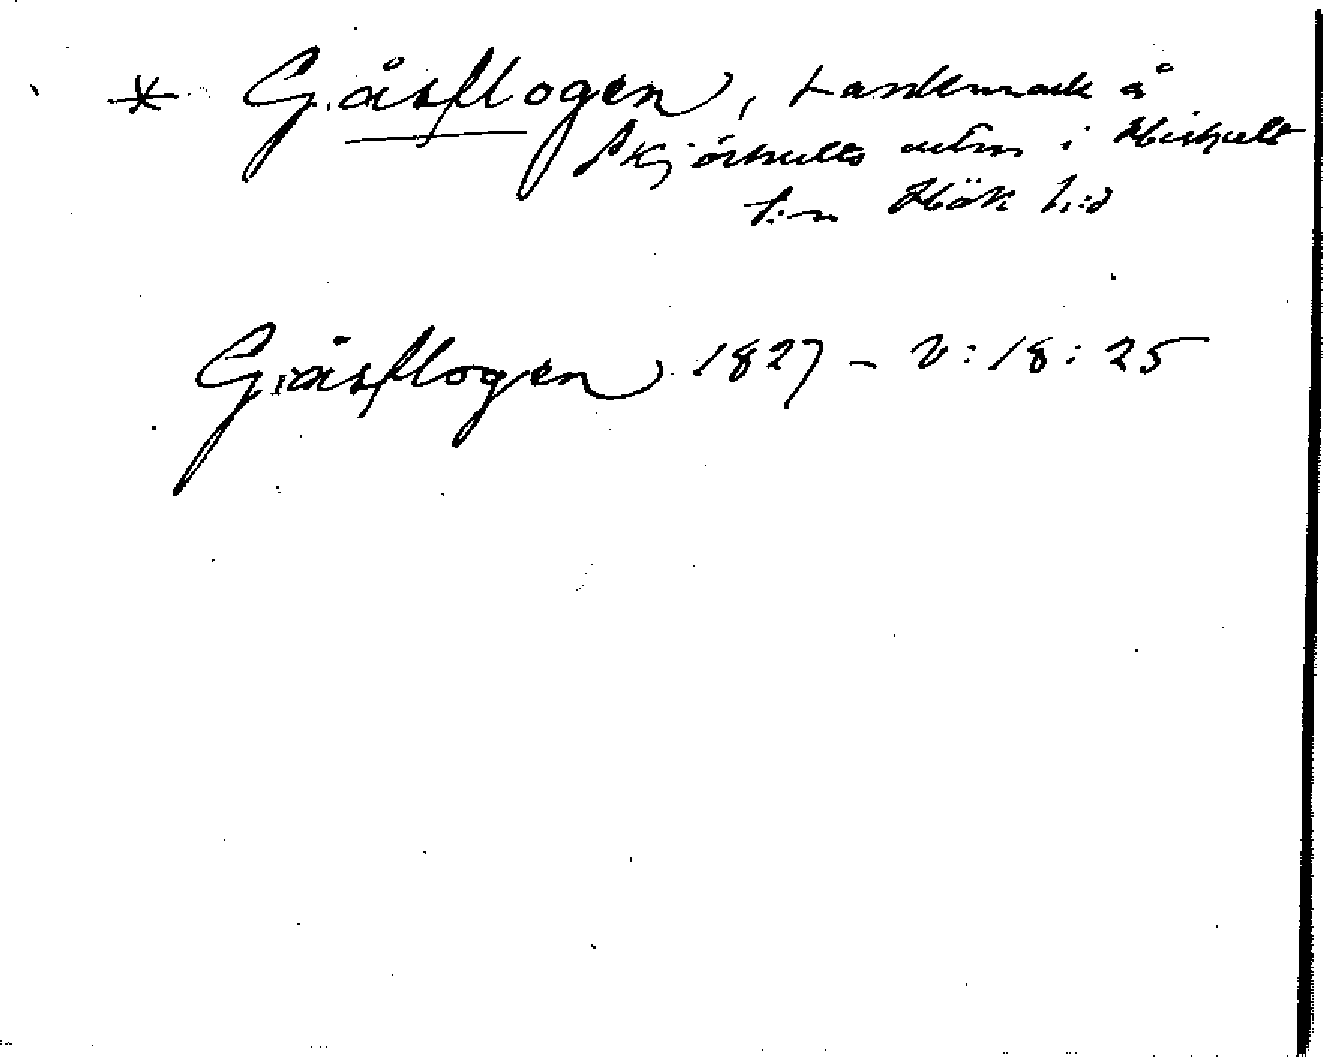 * Gåsflogen, Landtmark å
Skjörhults utm i Hishult
s:n Hök h:d
Gåsflogen 1827 - V:18:25